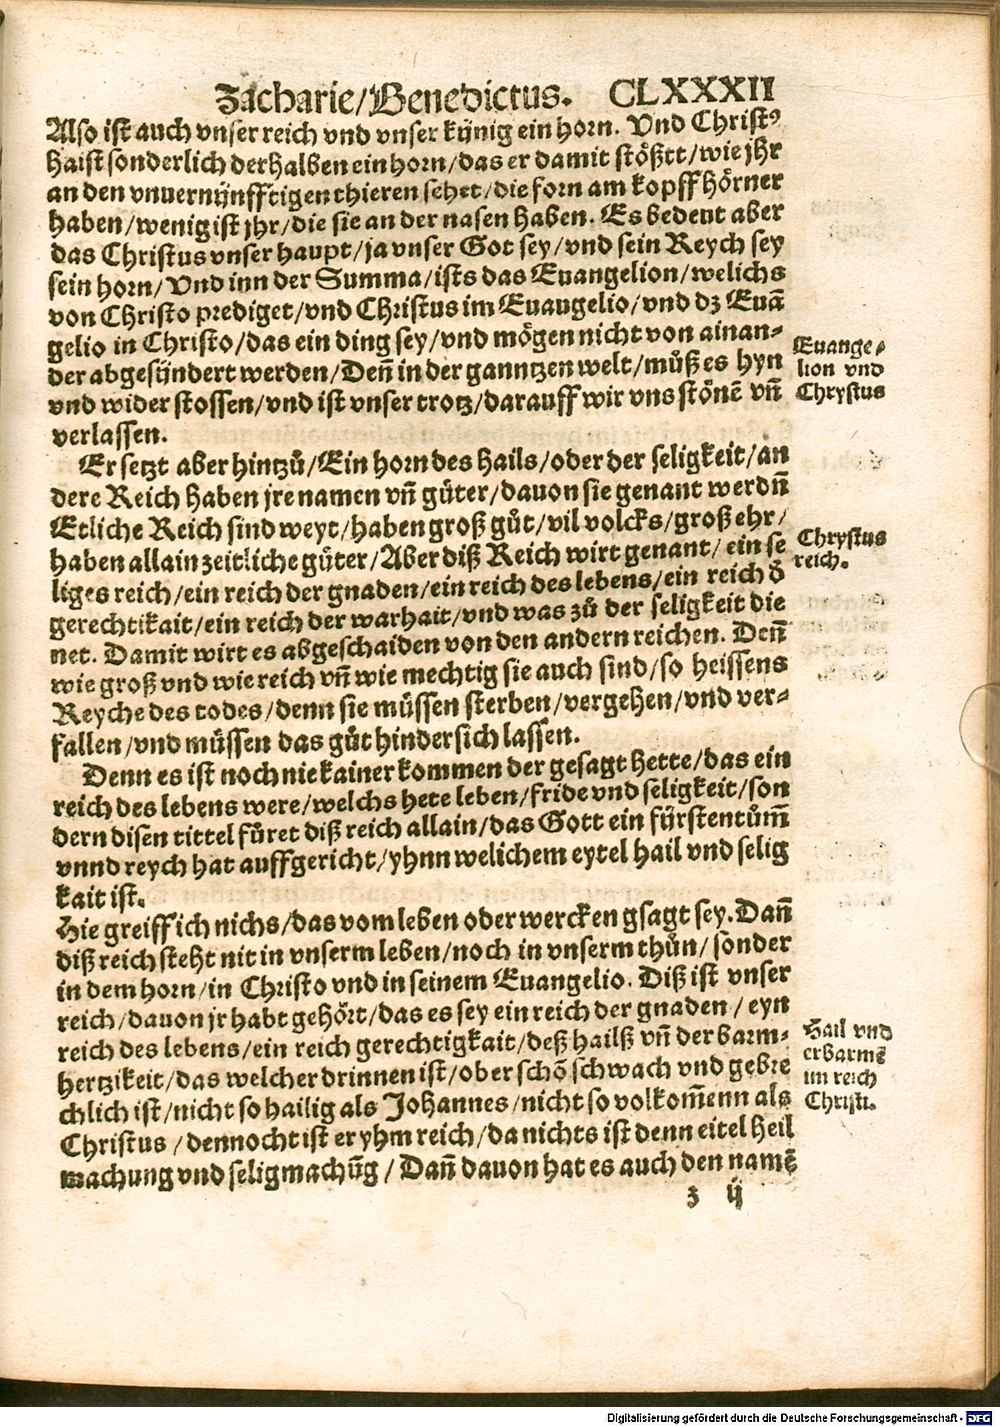 Zacharie/Benedictus. CLXXXII
Also ist auch vnser reich vnd vnser künig ein horn. Vnd Christꝰ
haist sonderlich derhalben ein horn/das er damit stößtt/wie jhr
an den vnuernünfftigen thieren sehet/die forn am kopff hörner
haben/wenig ist jhr/die sie an der nasen haben. Es bedeut aber
das Christus vnser haupt/ja vnser Got sey/vnd sein Reych sey
sein horn/Vnd inn der Summa/ists das Euangelion/welichs
von Christo prediget/vnd Christus im Euaugelio/vnd dz Euā
gelio in Christo/das ein ding sey/vnd mögen nicht von ainan-
der abgesündert werden/Deñ in der ganntzen welt/můß es hyn
vnd wider stossen/vnd ist vnser trotz/darauff wir vns stönē vñ
verlassen.
Euange-
lion vnd
Chrystus
Er setzt aber hintzů/Ein horn des hails/oder der seligkeit/an
dere Reich haben jre namen vñ güter/dauon sie genant werdñ
Etliche Reich sind weyt/haben groß gůt/vil volcks/groß ehr/
haben allain zeitliche güter/Aber diß Reich wirt genant/ein se
liges reich/ein reich der gnaden/ein reich des lebens/ein reich d̄
gerechtikait/ein reich der warhait/vnd was zů der seligkeit die
net. Damit wirt es abgeschaiden von den andern reichen. Deñ
wie groß vnd wie reich vñ wie mechtig sie auch sind/so heissens
Reyche des todes/denn sie müssen sterben/vergehen/vnd ver-
fallen/vnd müssen das gůt hinder sich lassen.
Chrystus
reich.
Denn es ist noch nie kainer kommen der gesagt hette/das ein
reich des lebens were/welchs hete leben/fride vnd seligkeit/son
dern disen tittel füret diß reich allain/das Gott ein fürstentům̄
vnnd reych hat auffgericht/yhnn welichem eytel hail vnd selig
kait ist.
Hie greiff ich nichs/das vom leben oder wercken gsagt sey. Dañ
diß reich steht nit in vnserm leben/noch in vnserm thůn/sonder
in dem horn/in Christo vnd in seinem Euangelio. Diß ist vnser
reich/dauon jr habt gehört/das es sey ein reich der gnaden/eyn
reich des lebens/ein reich gerechtigkait/deß hailß vñ der barm-
hertzikeit/das welcher drinnen ist/ober schō schwach vnd gebre
chlich ist/nicht so hailig als Johannes/nicht so volkom̄enn als
Christus/dennocht ist er yhm reich/da nichts ist denn eitel heil
wachung vnd seligmachūg/Dañ dauon hat es auch den namē
Hail vnd
erbarmē
im reich
Christi.
z ij
Digitalisierung gefördert durch die Deutsche Forschungsgemeinschaft - DFG